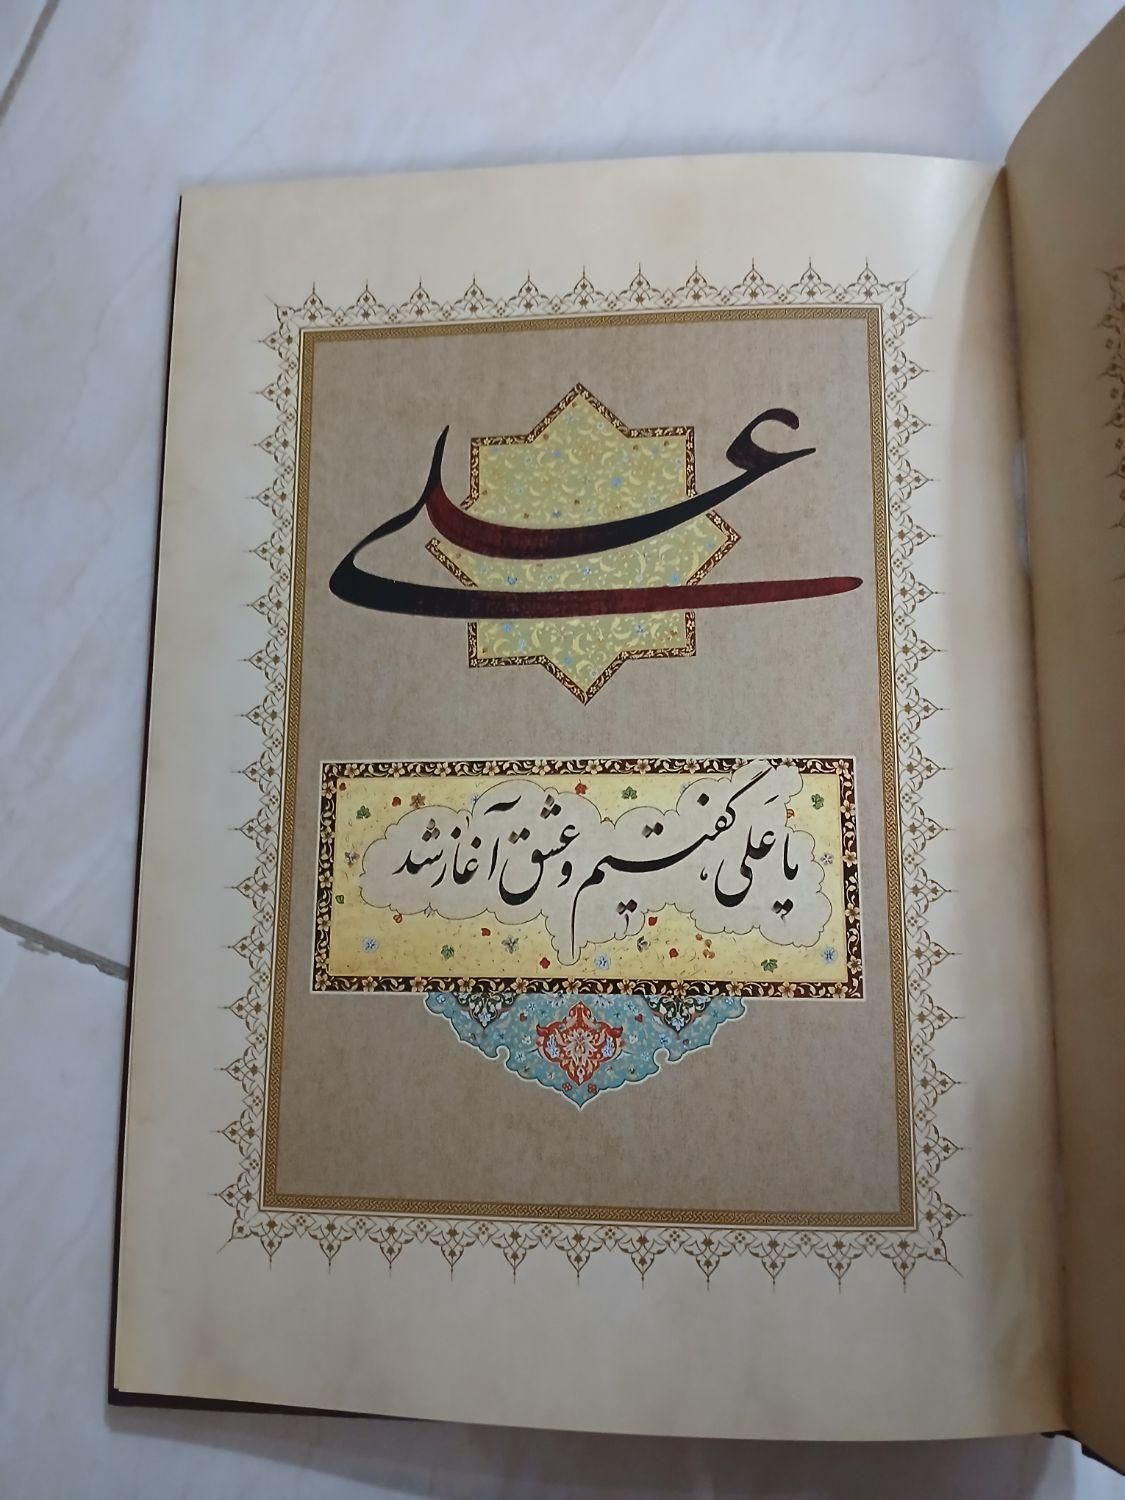 علی
یا عَلی، گفتیم و عشق آغاز شد